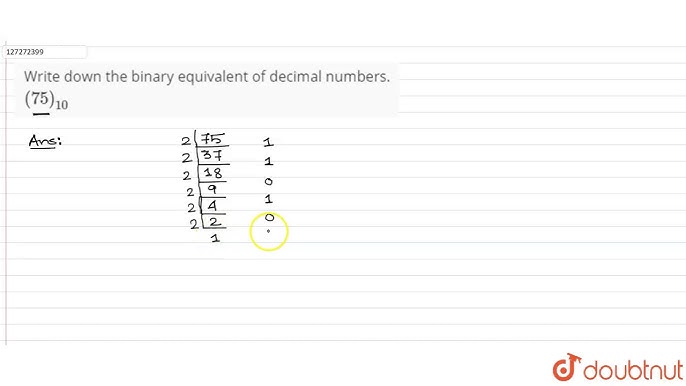 127272399
Write down the binary equivalent of decimal numbers.
(75)10
Ans:
2 75 1
2 37 1
2 18 0
2 9 1
2 4 0
2 2
1
doubtnut